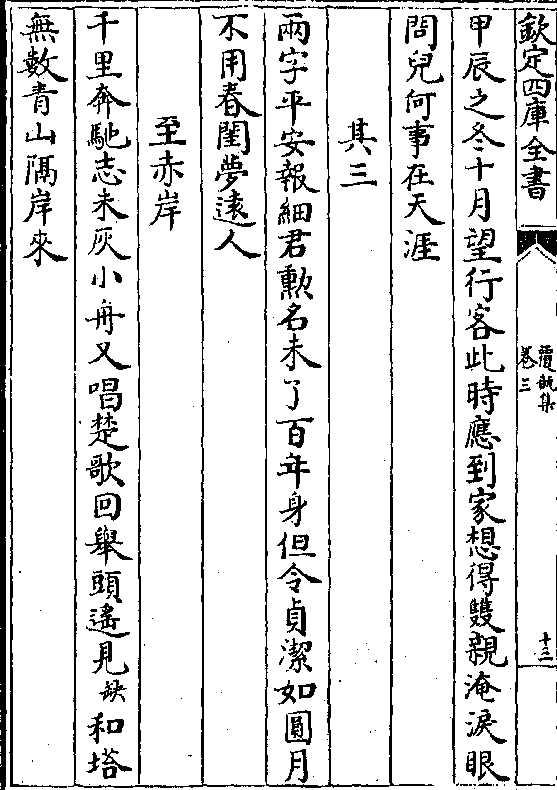 欽定四庫全書
覆瓿集
卷三
十三
甲辰之冬十月望行客此時應到家想得雙親淹淚眼
問兒何事在天涯
其三
兩字平安報細君勲名未了百年身但令貞潔如圓月
不用春閨夢遠人
至赤岸
千里奔馳志未灰小舟又唱楚歌回舉頭遙見缺和塔
無數青山隔岸來